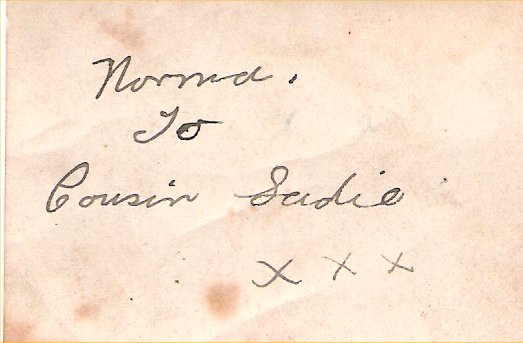 Norma.
To
Cousin Sadie
x x x